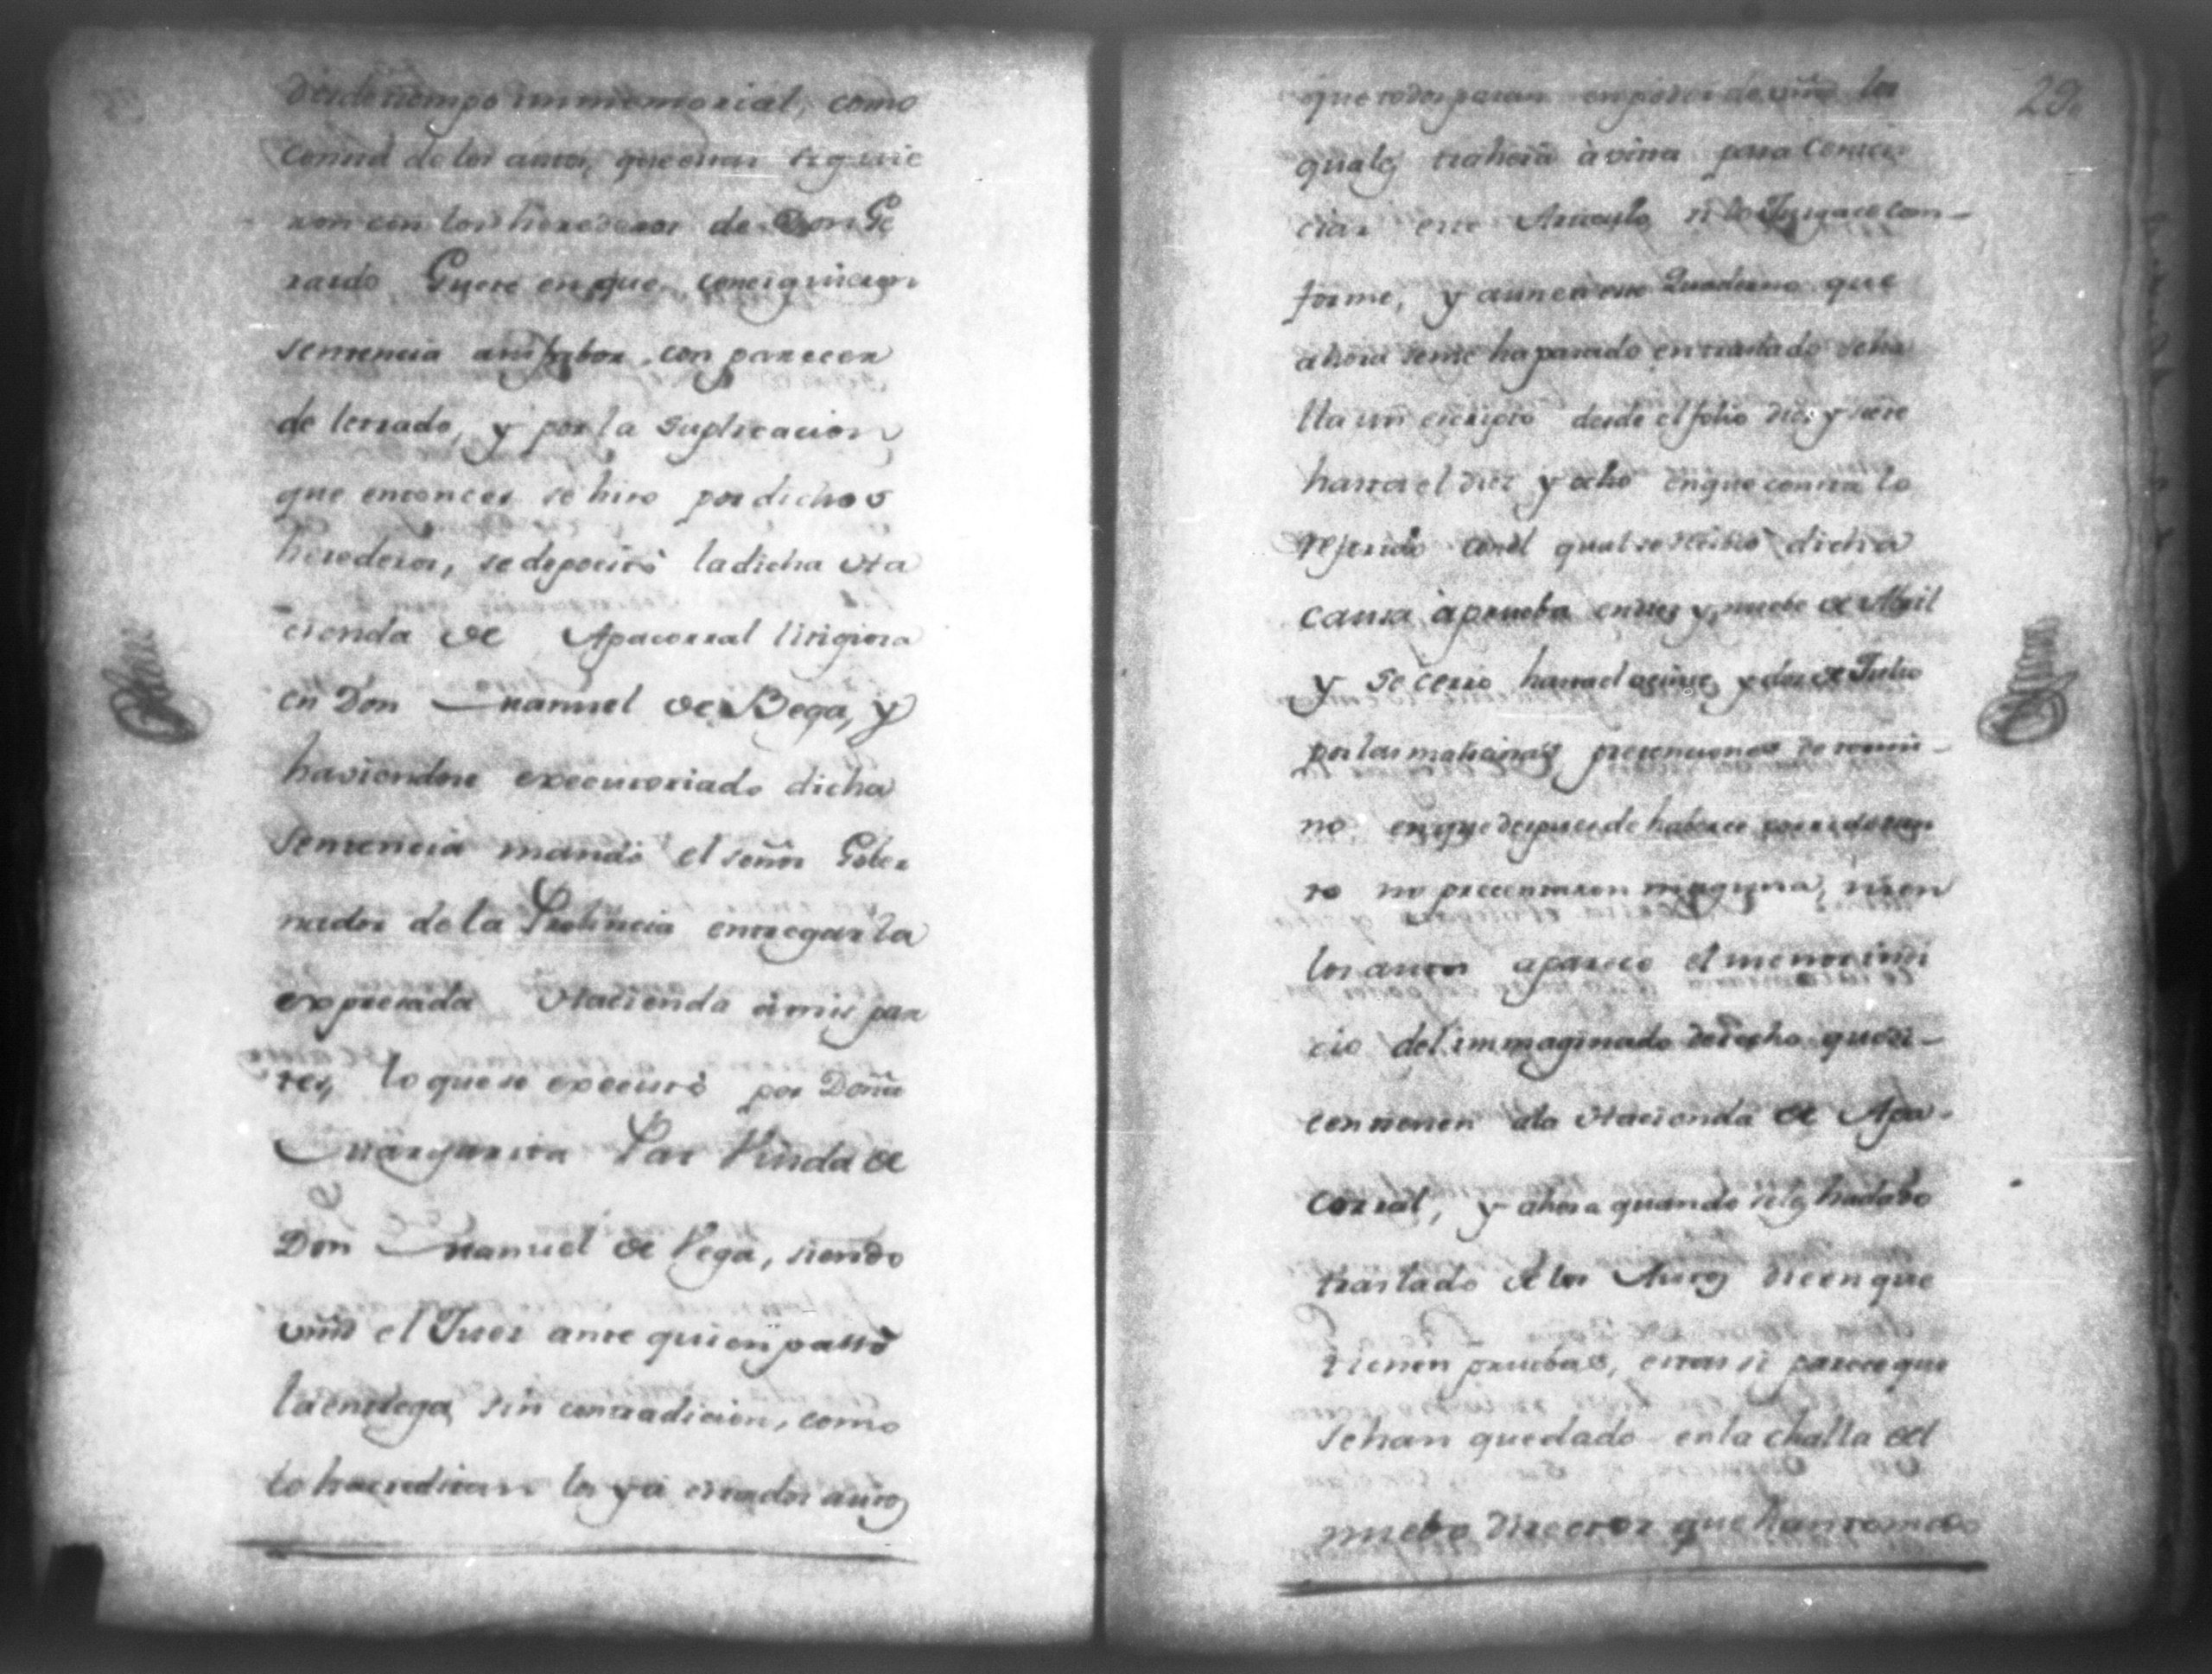 desde tiempo immemorial, como
consta de los autos, que estas siguie
ron con los herederos de Don Ge
rardo Guere en que consiguieron
sentencia a su fabor, con parecer
de letrado, y por la suplicacion
que entonces se hiso por dichos
herederos, se depocitó la dicha Ha
cienda de Apacorral litigiosa
en Don Manuel de Bega, y
haviendose executoriado dicha
sentencia mandó el señor Gober
nador de la Probincia entregar la
expresada Hacienda á mis par
tes, lo que se executó por Doña
Margarita Paz Viuda de
Don Manuel de Vega, siendo
vmd el Juez ante quien passó
la entrega sin contradicion, como
lo hacreditan los ya citados autos
29.
que todos paran en poder de vmd los
quales trahera à vista para conten
ciar este Articulo si lo Jusgare con-
forme, y aun en este Quaderno que
ahora se me ha pasado en traslado se ha
lla un escripto desde el folio dies y siete
hasta el dies y ocho en que consta lo
referido con el qual se recibió dicha
causa à prueba en dies y nuebe de Abril
y se cerró hasta el veinte y dos de Julio
por las maliciosas pretenciones de termi-
no en que despues de haberse
no presentaron ninguna, ni en
los autos aparece el menor indi
cio del immaginado derecho que di-
cen tienen á la Hacienda de Apa-
corral, y ahora quando se les ha dado
traslado de los Autos dicen que
tienen pruebas, estas si parece que
se han quedado en la challa del
nuebo director que han tomado